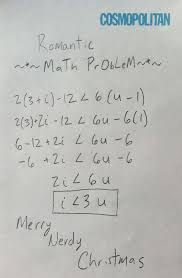 COSMOPOLITAN
Romantic
~*~ MaTh PrObLeM ~*~
2(3+i)-12 < 6(u-1)
2(3)+2i-12 < 6u-6(1)
6-12+2i < 6u-6
-6+2i < 6u-6
2i < 6u
i <3 u
Merry
Nerdy
Christmas